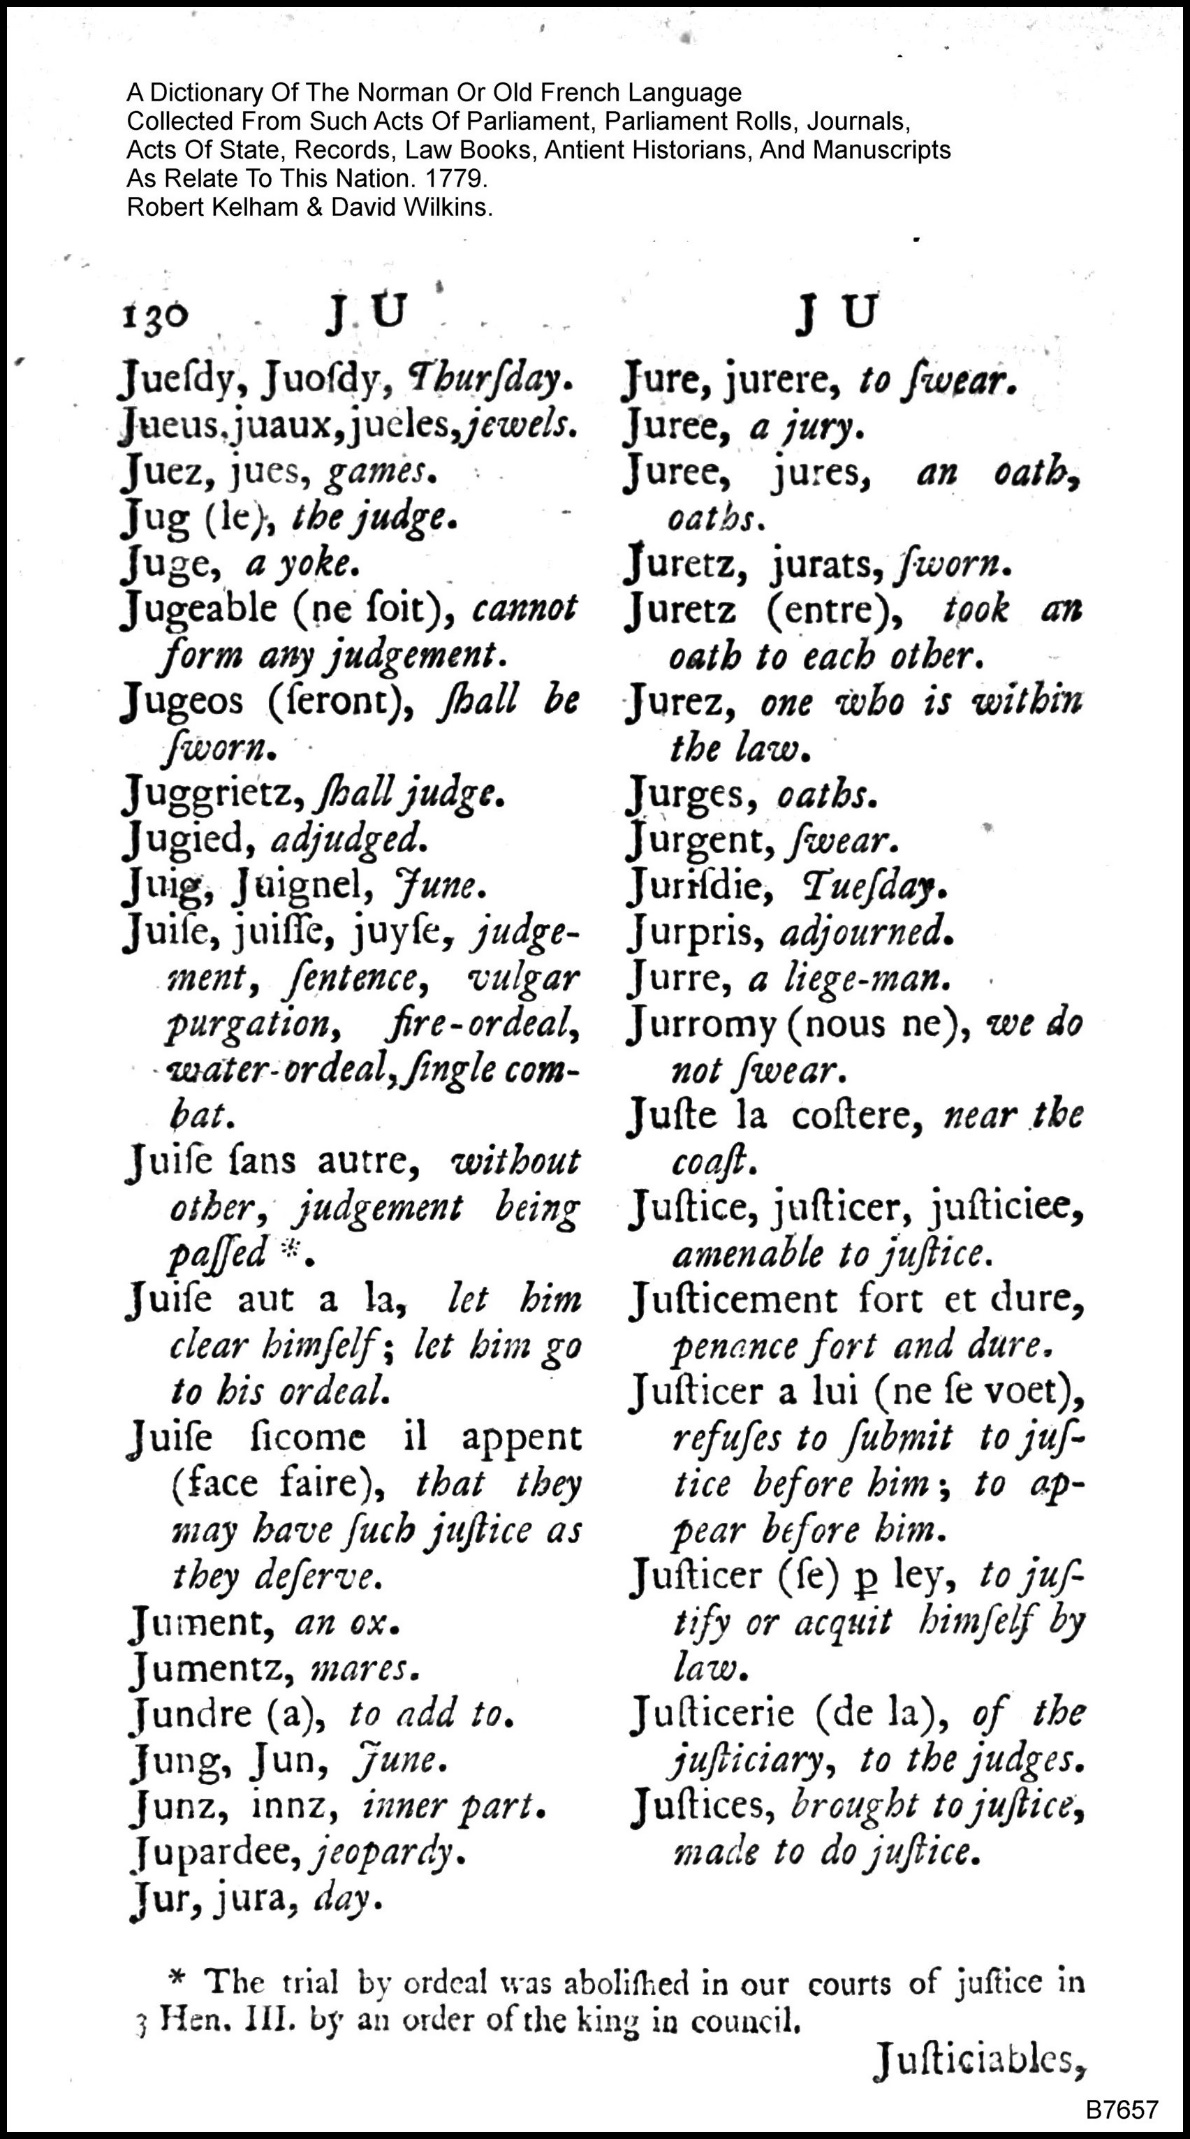 A Dictionary Of The Norman Or Old French Language
Collected From Such Acts Of Parliament, Parliament Rolls, Journals,
Acts Of State, Records, Law Books, Antient Historians, And Manuscripts
As Relate To This Nation. 1779.
Robert Kelham & David Wilkins.
130 J U
Jueſdy, Juoſdy, Thurſday.
Jueus, juaux, jueles, jewels.
Juez, jues, games.
Jug (le), the judge.
Juge, a yoke.
Jugeable (ne ſoit), cannot
form any judgement.
Jugeos (ſeront), ſhall be
ſworn.
Juggrietz, ſhall judge.
Jugied, adjudged.
Juig, Juignel, June.
Juiſe, juiſſe, juyſe, judge-
ment, ſentence, vulgar
purgation, fire-ordeal,
water-ordeal, ſingle com-
bat.
Juiſe ſans autre, without
other, judgement being
paſſed *.
Juiſe aut a la, let him
clear himſelf; let him go
to his ordeal.
Juiſe ſicome il appent
(face faire), that they
may have ſuch juſtice as
they deſerve.
Jument, an ox.
Jumentz, mares.
Jundre (a), to add to.
Jung, Jun, June.
Junz, innz, inner part.
Jupardee, jeopardy.
Jur, jura, day.
J U
Jure, jurere, to ſwear.
Juree, a jury.
Juree, jures, an oath,
oaths.
Juretz, jurats, ſworn.
Juretz (entre), took an
oath to each other.
Jurez, one who is within
the law.
Jurges, oaths.
Jurgent, ſwear.
Juriſdie, Tueſday.
Jurpris, adjourned.
Jurre, a liege-man.
Jurromy (nous ne), we do
not ſwear.
Juſte la coſtere, near the
coaſt.
Juſtice, juſticer, juſticiee,
amenable to juſtice.
Juſticement fort et dure,
penance fort and dure.
Juſticer a lui (ne ſe voet),
refuſes to ſubmit to juſ-
tice before him; to ap-
pear before him.
Juſticer (ſe) ꝑ ley, to juſ-
tify or acquit himſelf by
law.
Juſticerie (de la), of the
juſticiary, to the judges.
Juſtices, brought to juſtice,
made to do juſtice.
* The trial by ordeal was aboliſhed in our courts of juſtice in
3 Hen. III. by an order of the king in council.
Juſticiables,
B7657